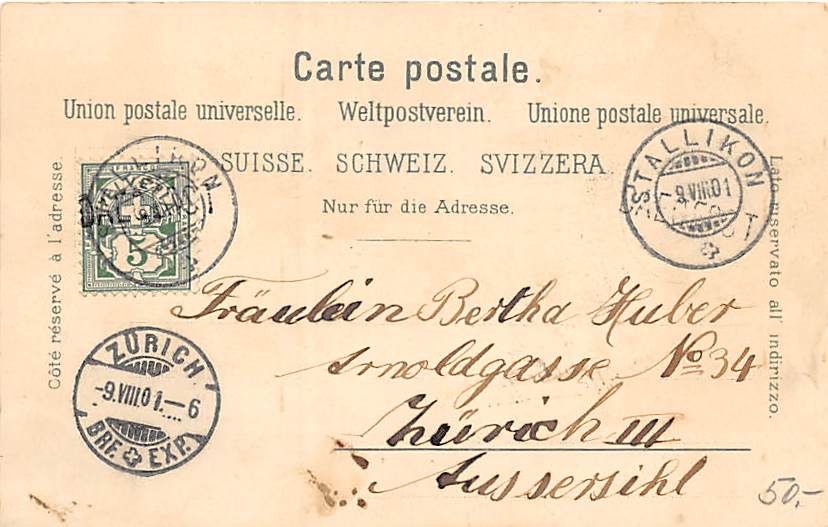 Carte postale.
Union postale universelle. Weltpostverein. Unione postale universale.
SUISSE. SCHWEIZ. SVIZZERA.
Nur für die Adresse.
Côté réservé à l'adresse.
Lato riservato all' indirizzo.
HELVETIA
5
STALLIKON
9.VIII.01
ZÜRICH.
-9.VIII.01.-6
BRF. EXP.
Fräulein Bertha Huber
Arnoldgasse No 34
Zürich III
Aussersihl
50.-